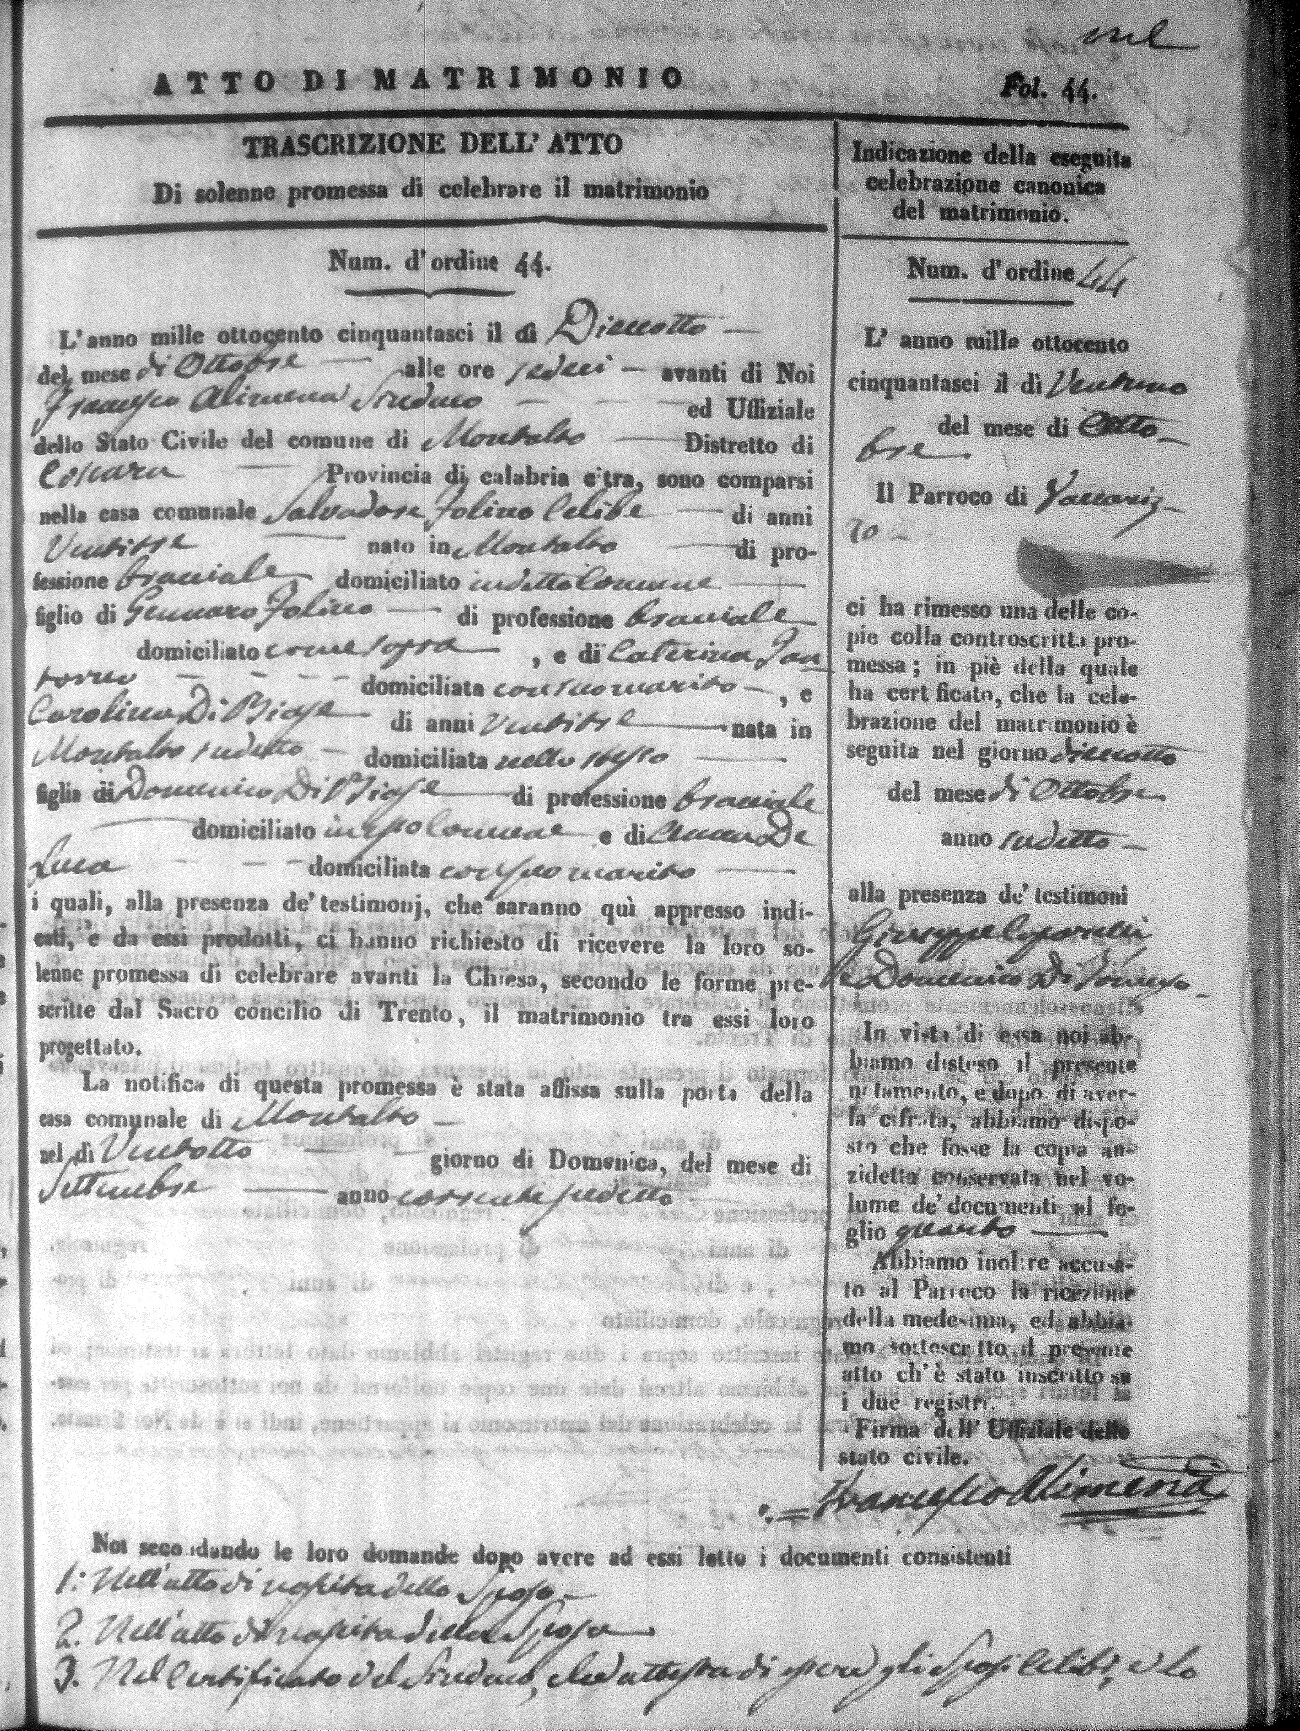 ATTO DI MATRIMONIO
Fol. 44.
TRASCRIZIONE DELL' ATTO
Di solenne promessa di celebrare il matrimonio
Num. d'ordine 44.
L'anno mille ottocento cinquantasei il dì Dieciotto
del mese di Ottobre alle ore sedeci avanti di Noi
Francesco Alimena Sindaco ed Uffiziale
dello Stato Civile del comune di Montalto Distretto di
Cosenza Provincia di calabria citra, sono comparsi
nella casa comunale Salvadore Folino Celibe di anni
Ventitre nato in Montalto di pro-
fessione bracciale domiciliato in detto Comune
figlio di Gennaro Folino di professione bracciale
domiciliato come sopra , e di Caterina
domiciliata con suo marito , e
Carolina Di Biase di anni Ventitre nata in
Montalto sudetto domiciliata nello stesso
figlia di Domenico Di Biase di professione bracciale
domiciliato in esso Comune e di De
Luca domiciliata con esso marito
i quali, alla presenza de' testimonj, che saranno quì appresso indi-
cati, e da essi prodotti, ci hanno richiesto di ricevere la loro so-
lenne promessa di celebrare avanti la Chiesa, secondo le forme pre-
scritte dal Sacro concilio di Trento, il matrimonio tra essi loro
progettato.
La notifica di questa promessa è stata affissa sulla porta della
casa comunale di Montalto
nel dì Ventotto giorno di Domenica, del mese di
Settembre anno corrente sudetto
Indicazione della eseguita
celebrazione canonica
del matrimonio.
Num. d'ordine 44
L' anno mille ottocento
cinquantasei il dì Ventuno
del mese di Otto-
bre.
Il Parroco di Vaccariz-
zo
ci ha rimesso una delle co-
pie colla controscritta pro-
messa; in piè della quale
ha certificato, che la cele-
brazione del matrimonio è
seguita nel giorno dieciotto
del mese di Ottobre
anno sudetto
alla presenza de' testimoni
Giuseppe
e Domenico Di
In vista di essa noi ab-
biamo disteso il presente
notamento, e dopo di aver-
la cifrata, abbiamo dispo-
sto che fosse la copia an-
zidetta conservata nel vo-
lume de' documenti al fo-
glio quarto
Abbiamo inoltre accusa-
to al Parroco la ricezione
della medesima, ed abbia-
mo sottoscritto il presente
atto ch' è stato inscritto su
i due registri.
Firma dell' Uffiziale dello
stato civile.
Francesco Alimena
Noi secondando le loro domande dopo avere ad essi letto i documenti consistenti
1: Nell'atto di nascita dello Sposo
2. Nell'atto di nascita della Sposa
3. Nel Certificato del Sindaco, che attesta di essere gli Sposi Celibi, e lo